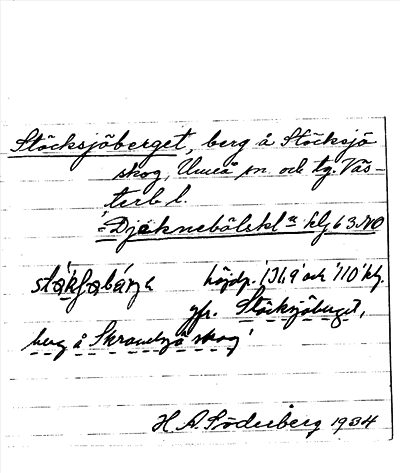 Stöcksjöberget, berg å Stöcksjö
skog, Umeå sn. och tg. Väs-
terb. l.
= Djäknebölskl:n klj 63 NO
höjdp. '31,9' och '110' klj.
jfr. Stöcksjöberget,
berg å Skravelsjö skog'
H A. Söderberg 1934